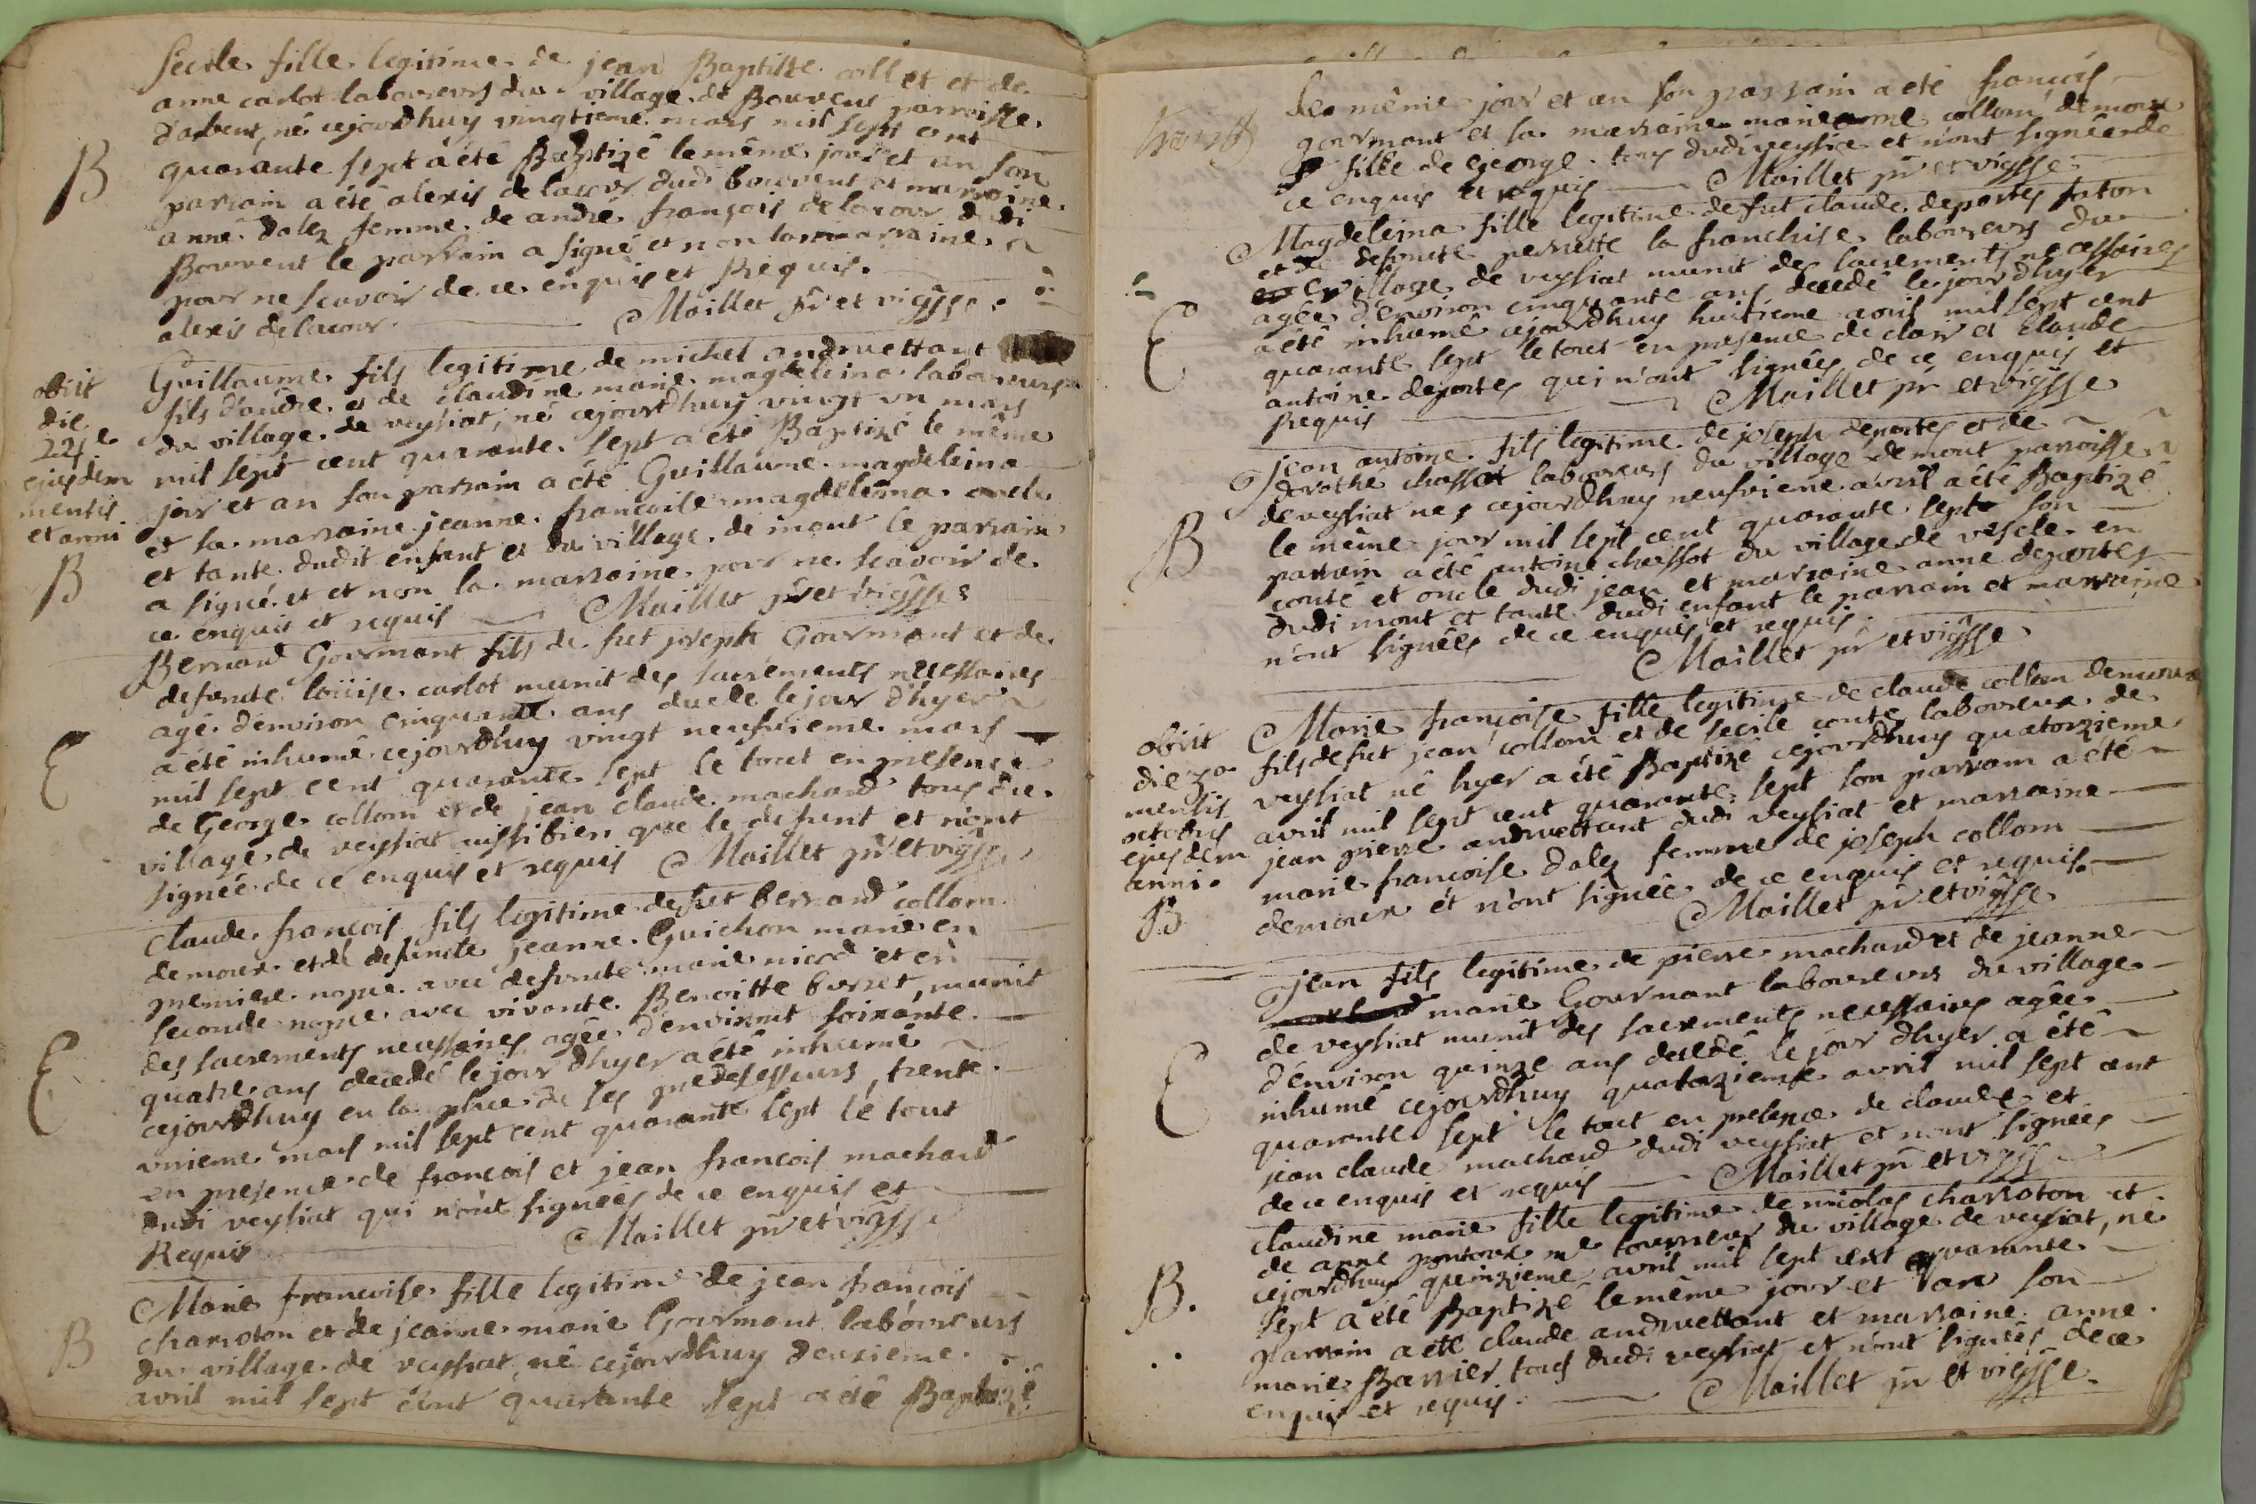 Secile fille legitime de jean Baptiste coll et et de
anne carlot laboureurs du village de Bouvent parroisse
d'arbent, né cejourdhuy vingtieme mars mil sept cent
B
quarante sept à été Baptizé le même jour et an son
parrain a été alexis delacour dudi bouvent et marraine
anne dalez femme de andré françois delacour dudi
Bouvent le parrain a signé et non la marraine
pour ne scavoir de ce enquis et Requis.
alexis delacour. Maillet pr et vigsse.
Guillaume fils legitime de michel andruettant
fils d'andre et de claudine marie magdeleina laboureurs
du village de veysiat, né cejourdhuy vingt un mars
obiit
die
22e
ejusdem
mensis
et anni
B
mil sept cent quarante sept a été Baptizé le même
jour et an son parrain a été Guillaume magdeleina
et sa marraine jeanne francoise magdeleina oncle
et tante dudit enfant et du village de mont le parrain
a signé et et non la marraine pour ne scavoir de
ce enquis et requis Maillet pr et vigsse
Bernard Gourmant fils de fut joseph Gourmant et de
defunte loüise carlot munit des sacrements necessaires
agé d'environ cinquante ans decede le jour d'hyer
E
a été inhumé cejourdhuy vingt neufvieme mars
mil sept cent quarante sept le tout en presence
de George collom et de jean claude machard tous du
village de veysiat aussi bien que le defunt et n'ont
signée de ce enquis et requis Maillet pr et vigsse
claude françois fils legitime de fut bernard collom
demoux et de defuncte jeanne Guichon marié en
premiere nopce avec defunte marie nicod et en
seconde nopce avec vivante Benoitte burret, munit
E
des sacrements necessaires agée d'environt soixante
quatre ans decedé le jour dhyer a été inhumé
cejourdhuy en la place de ses predesesseurs, trente
unieme mars mil sept cent quarante sept le tout
en presence de francois et jean francois machard
dudi veysiat qui n'ont signées de ce enquis et
Requis Maillet pr et vigsse
Marie francoise fille legitime de jean françois
B
charroton et de jeanne marie Gourmant laboureurs
du village de veysiat, né cejourdhuy deuxieme
avril mil sept cent quarante sept a été Baptizé
le même jour et an son parrain a été françois
gourmant et sa marraine marie anne collom demoux
fille de george tous dudi veysia et n'ont signée de
ce enquis et requis Maillet pr et vigsse
Magdeleina fille legitime de fut claude deportes faton
et de defuncte pernette la franchise laboureurs du
village de veysiat munit des sacrements necessaires
E
agée d'environ cinquante ans decedé le jour dhyer
a été inhumé cejourdhuy huitieme avril mil sept cent
quarante sept le tout en presence de clair et claude
antoine deportes qui n'ont signées de ce enquis et
Requis Maillet pr et vigsse
Jean antoine fils legitime de joseph deportes et de
dorothe chassot laboureurs du village demont parroisse
de veysiat nes cejourdhuy neufvieme avril a été Baptizé
B
le même jour mil sept cent quarante sept son
parrain a été antoine chassot du village de vescle en
conté et oncle dudi jean et marraine anne deportes
dudi mont et tante dudi enfant le parrain et marraine
n'ont signées de ce enquis et requis.
Maillet pr et vigsse
Marie françoise fille legitime de claude collom demoux
fils de fut jean collom et de secile conte laboureux de
obiit
die 30
mensis
octobris
ejusdem
anni.
B
veysiat né hyer a été Baptizé cejourdhuy quatorzieme
avril mil sept cent quarante sept son parrain a été
jean pierre andruettant dudi veysiat et marraine
marie francoise dalez femme de joseph collom
demoux et n'ont signée de ce enquis et requis.
Maillet pr et vigsse
Jean fils legitime de pierre machard et de jeanne
marie Gourmant laboureurs du village
de veysiat munit des sacrements necessaires agée
E
d'environ quinze ans decedé le jour dhyer a été
inhumé cejourdhuy quatorzieme avril mil sept cent
quarante sept le tout en presence de claude et
jean claude machard dudi veysiat et n'ont signées
de ce enquis et requis Maillet pr et vigsse
claudine marie fille legitime de nicolas charroton et
de anne me tourneur du village de veysiat, né
B.
cejourdhuy quinzieme avril mil sept cent quarante
sept a été Baptizé le même jour et an son
parrain a été claude andruettant et marraine anne
marie Barrier tous dudi veysiat et n'ont signées de ce
enquis et requis. Maillet pr et vigsse.